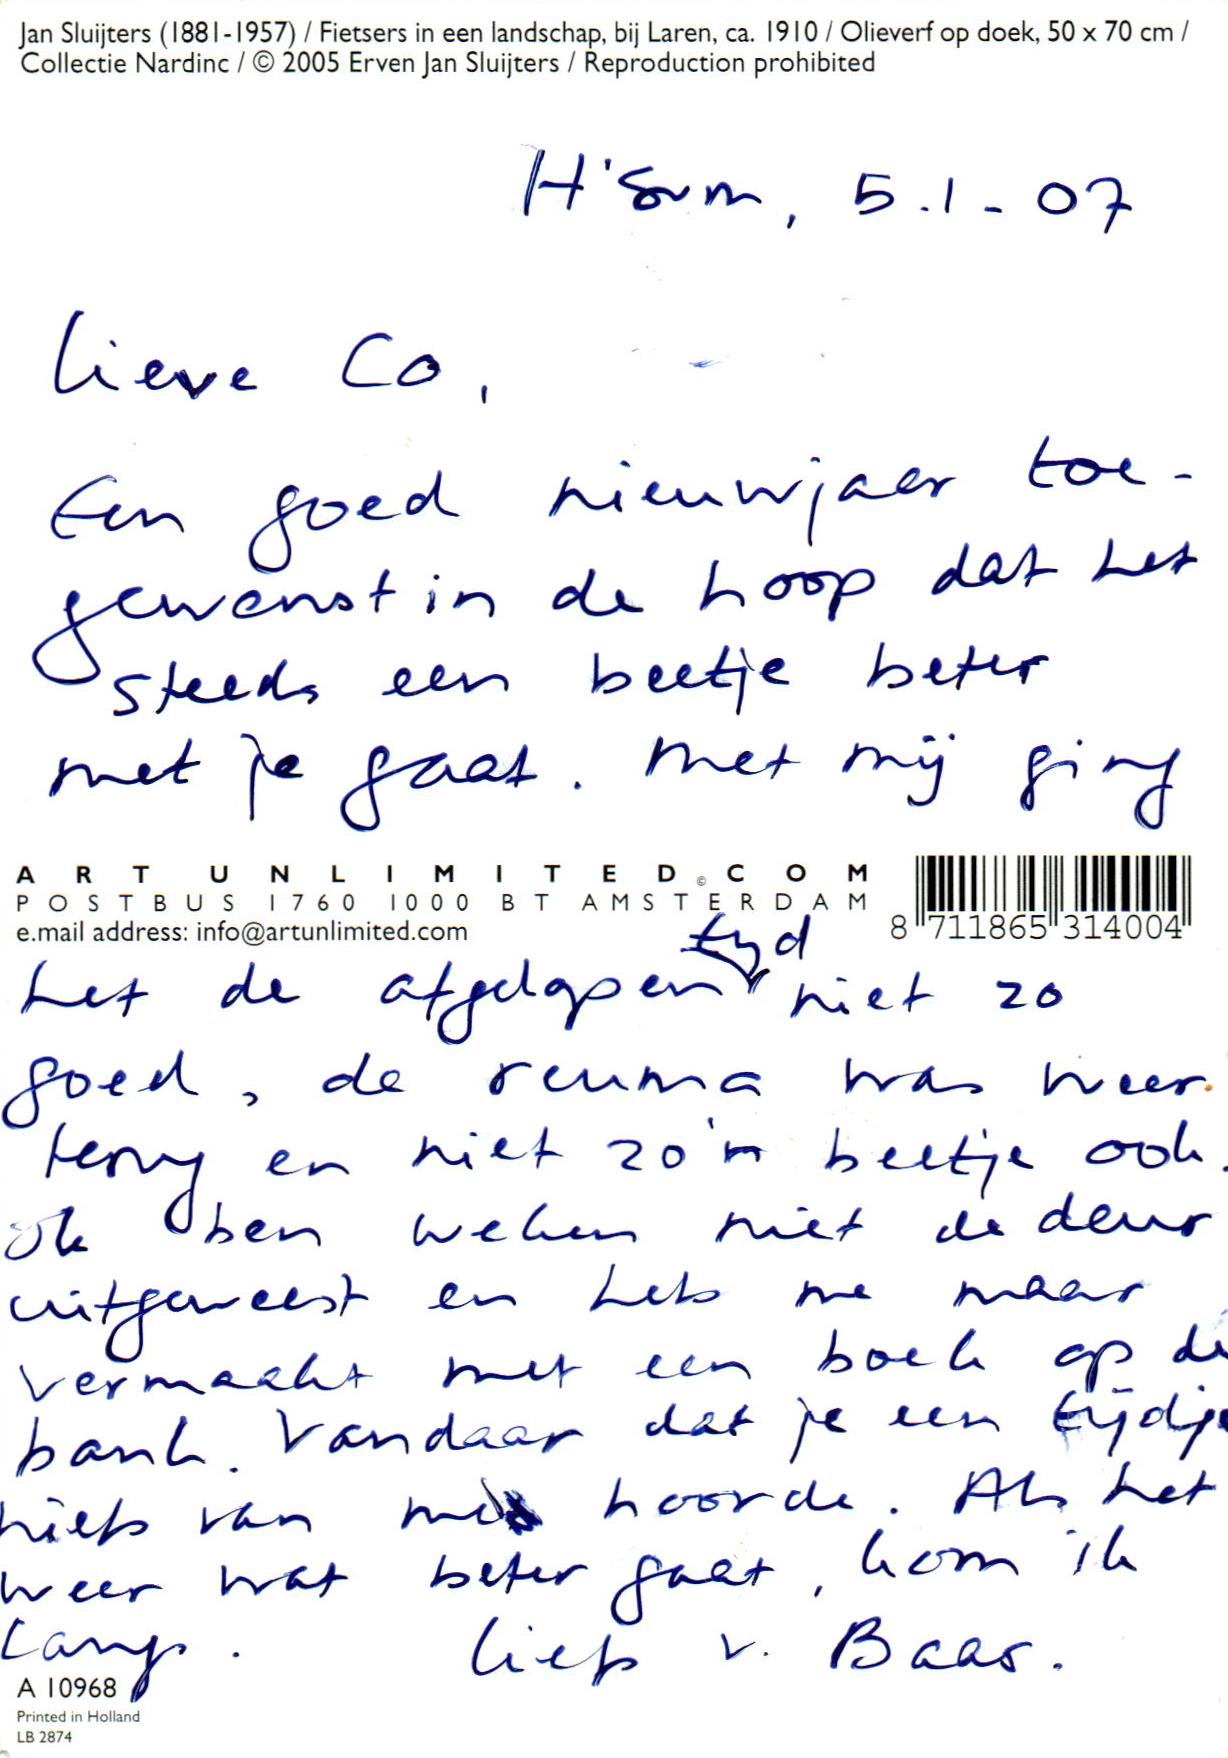 Jan Sluijters (1881-1957) / Fietsers in een landschap, bij Laren, ca. 1910 / Olieverf op doek, 50 x 70 cm /
Collectie Nardinc / © 2005 Erven Jan Sluijters / Reproduction prohibited
H'Sum, 5.1-07
Lieve Co,
Een goed nieuwjaar toe-
gewenst in de hoop dat het
steeds een beetje beter
met je gaat. Met mij ging
ART UNLIMITED©COM
POSTBUS 1760 1000 BT AMSTERDAM
e.mail address: info@artunlimited.com
8 711865 314004
tijd
het de afgelopen niet zo
goed, de reuma was weer
terug en niet zo'n beetje ook.
Ik ben weken niet de deur
uitgeweest en heb me maar
vermaakt met een boek op de
bank. Vandaar dat je een tijdje
niets van me hoorde. Als het
weer wat beter gaat, kom ik
langs. Liefs v. Baas.
A 10968
Printed in Holland
LB 2874